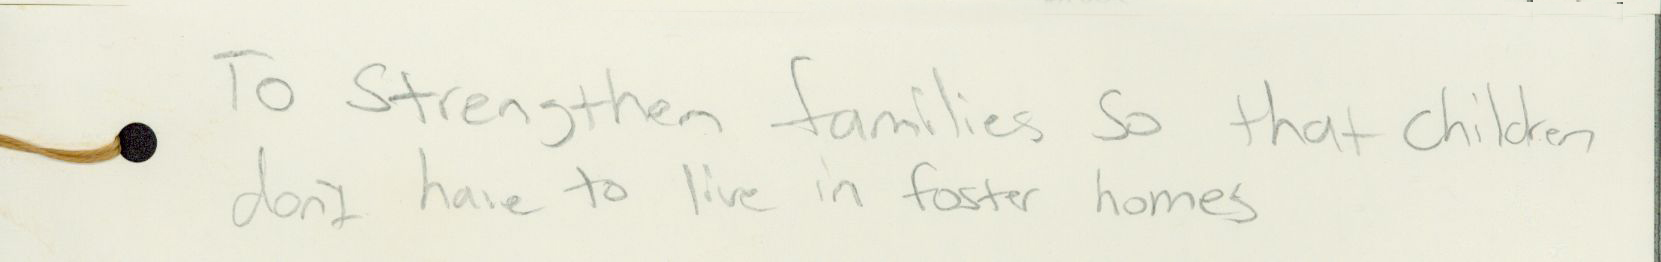 To Strengthen families so that children
don't have to live in foster homes